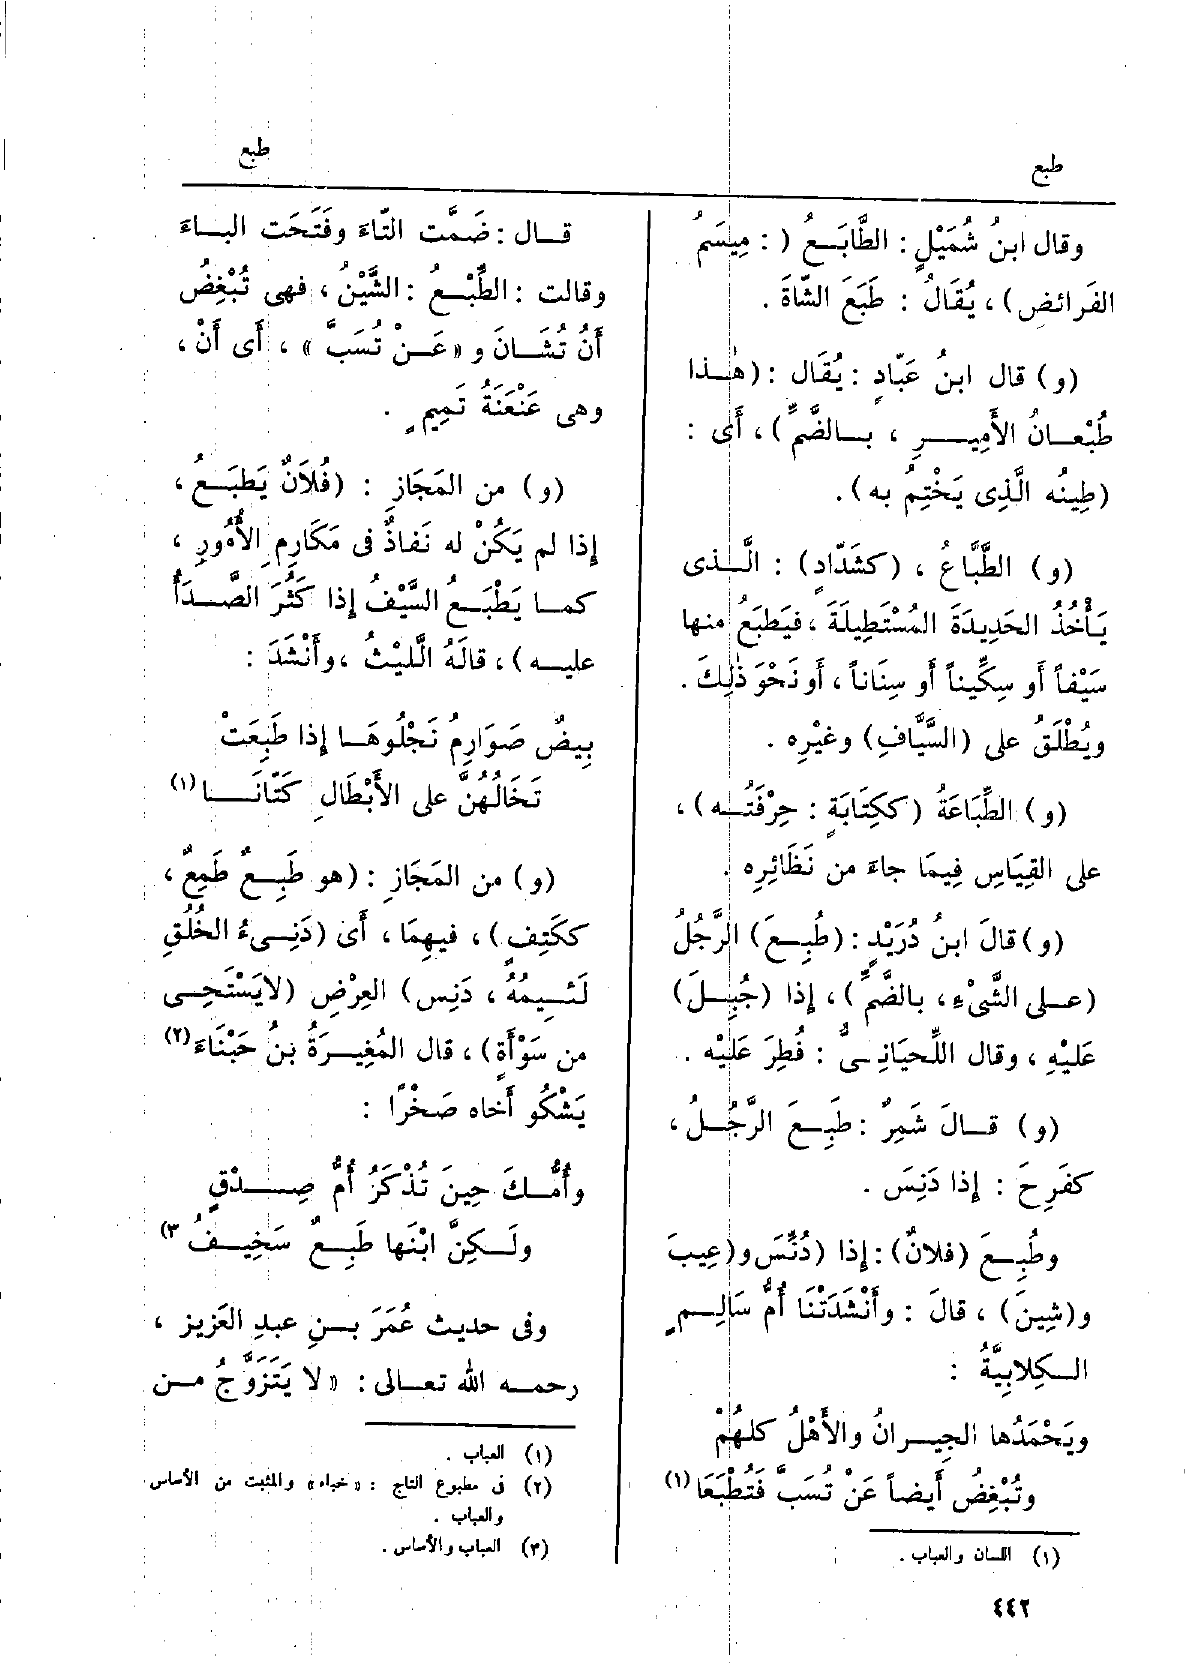 طبع
طبع
وقال ابنُ شُمَيْلٍ : الطَّابَعُ ( : مِيسَمُ
الفَرائض) ، يُقَالُ : طَبَعَ الشّاةَ .
(و) قال ابنُ عَبّادٍ : يُقَال : (هٰذا
طُبْعانُ الأَمِيرِ ، بالضَّمِّ) ، أَى :
(طِينُه الَّذِى يَخْتِمُ به) .
(و) الطَّبَّاعُ ، (كشَدّادٍ) : الَّذى
يَأْخُذُ الحَدِيدَةَ المُسْتَطِيلَةَ ، فيَطبَعُ منها
سَيْفاً أَو سِكِّيناً أَو سِنَاناً ، أَو نَحْوَ ذٰلِكَ .
ويُطْلَقُ على (السَّيَّافِ) وغيْرِه .
(و) الطِّبَاعَةُ (ككِتَابَةٍ : حِرْفَتُه) ،
على القِيَاسِ فِيمَا جاءَ من نَظَائِرِه .
(و) قالَ ابنُ دُرَيْدٍ : (طُبِعَ) الرَّجُلُ
(على الشَّىْءِ ، بالضَّمِّ) ، إذا (جُبِلَ)
عَلَيْهِ ، وقال اللِّحيَانِىُّ : فُطِرَ عَلَيْه .
(و) قالَ شَمِرٌ : طَبِعَ الرَّجُلُ ،
كفَرِحَ : إذا دَنِسَ .
وطُبِعَ (فلانٌ) : إذا (دُنِّسَ و(عِيبَ
و(شِينَ) ، قالَ : وأَنْشَدَتْنَا أُمُّ سَالِمٍ
الكِلابِيَّةُ :
ويَحْمَدُها الجِيرانُ والأَهْلُ كلهُمْ
وتُبْغِضُ أَيضاً عَنْ تُسَبَّ فَتُطْبَعَا (١)
(١) اللسان والعباب .
٤٤٢
قال : ضَمَّت التّاءَ وفَتَحَت الباءَ
وقالت : الطِّبْعُ : الشَّيْنُ ، فهى تُبْغِضُ
أَنْ تُشَانَ و «عَنْ تُسَبَّ» ، أَى أَنْ ،
وهى عَنْعَنَةُ تَمِيمٍ .
(و) من المَجَازِ : (فُلَانٌ يَطبَعُ ،
إذا لم يَكُنْ له نَفاذٌ فى مَكَارِمِ الأُمُورِ ،
كما يَطْبَعُ السَّيْفُ إذا كَثُرَ الصَّدَأُ
عليه) ، قالَهُ اللَّيْثُ ، وأَنْشَدَ :
بِيضٌ صَوَارِمُ نَجْلُوهَا إذا طَبِعَتْ
تَخَالُهُنَّ على الأَبْطَالِ كَتّانَا (١)
(و) من المَجَازِ : (هو طَبِعٌ طَمِعٌ ،
ككَتِفٍ) ، فيهِمَا ، أَى (دَنِىءُ الخُلُقِ
لَئِيمُهُ ، دَنِس) العِرْضِ (لايَسْتَحِى
من سَوْأَةٍ) ، قال المُغِيرَةُ بنُ حَبْنَاءَ (٢)
يَشْكُو أَخاه صَخْرًا :
وأُمُّكَ حِينَ تُذْكَرُ أُمُّ صِدْقٍ
ولكِنَّ ابْنَها طَبِعٌ سَخِيفُ ٣)
وفى حديث عُمَرَ بنِ عبدِ العَزيز ،
رحمه الله تعالى : «لا يَتَزَوَّجُ من
(١) العباب .
(٢) فى مطبوع التاج : «خباء» والمثبت من الأساس
والعباب .
(٣) العباب والأساس .